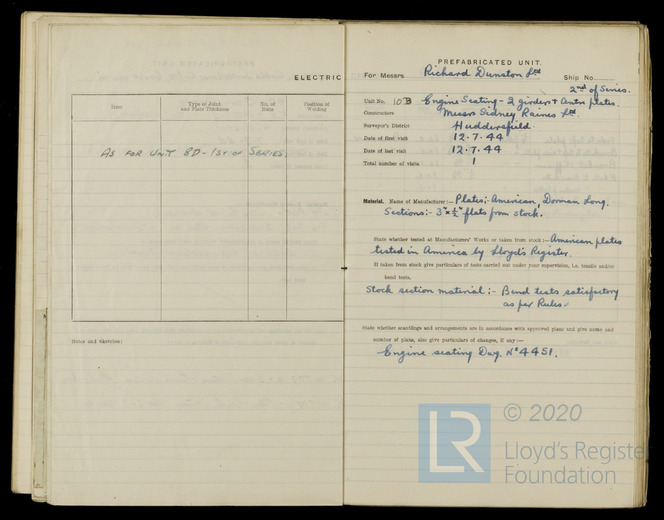 ELECTRIC
Item
Type of Joint and Plate Thickness
No. of Runs
Position of Welding
AS FOR UNIT 8D - 1ST OF SERIES.
Notes and Sketches:
PREFABRICATED UNIT.
For Messrs. Richard Dunston Ltd Ship No.
2nd of Series.
Unit No. 10B Engine Seating - 2 girders + Antn plates.
Constructors Messrs Sidney Raines Ltd
Surveyor's District Huddersfield.
Date of first visit 12.7.44
Date of last visit 12.7.44
Total number of visits 1
Material. Name of Manufacturer:- Plates:- American, Dorman Long.
Sections:- 3" x ½" flats from stock.
State whether tested at Manufacturers' Works or taken from stock:- American plates
tested in America by Lloyd's Register.
If taken from stock give particulars of tests carried out under your supervision, i.e. tensile and/or
bend tests.
Stock section material:- Bend tests satisfactory
as per Rules.
State whether scantlings and arrangements are in accordance with approved plans and give name and
number of plans, also give particulars of changes, if any:-
Engine seating Dwg. No 4451.
LR
© 2020
Lloyd's Register
Foundation